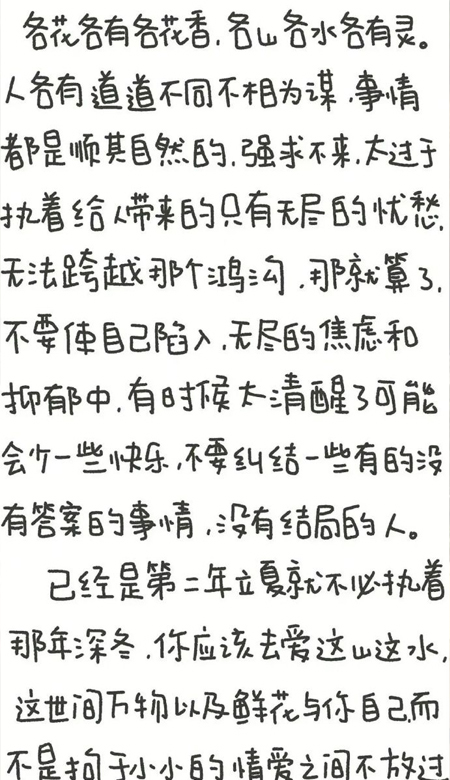 各花各有各花香,各山各水各有灵。
人各有道道不同不相为谋,事情
都是顺其自然的,强求不来,太过于
执着给人带来的只有无尽的忧愁,
无法跨越那个鸿沟,那就算了,
不要使自己陷入,无尽的焦虑和
抑郁中,有时候太清醒了可能
会少一些快乐,不要纠结一些有的没
有答案的事情,没有结局的人。
已经是第二年立夏就不必执着
那年深冬,你应该去爱这山这水,
这世间万物以及鲜花与你自己,而
不是拘于小小的情爱之间不放过